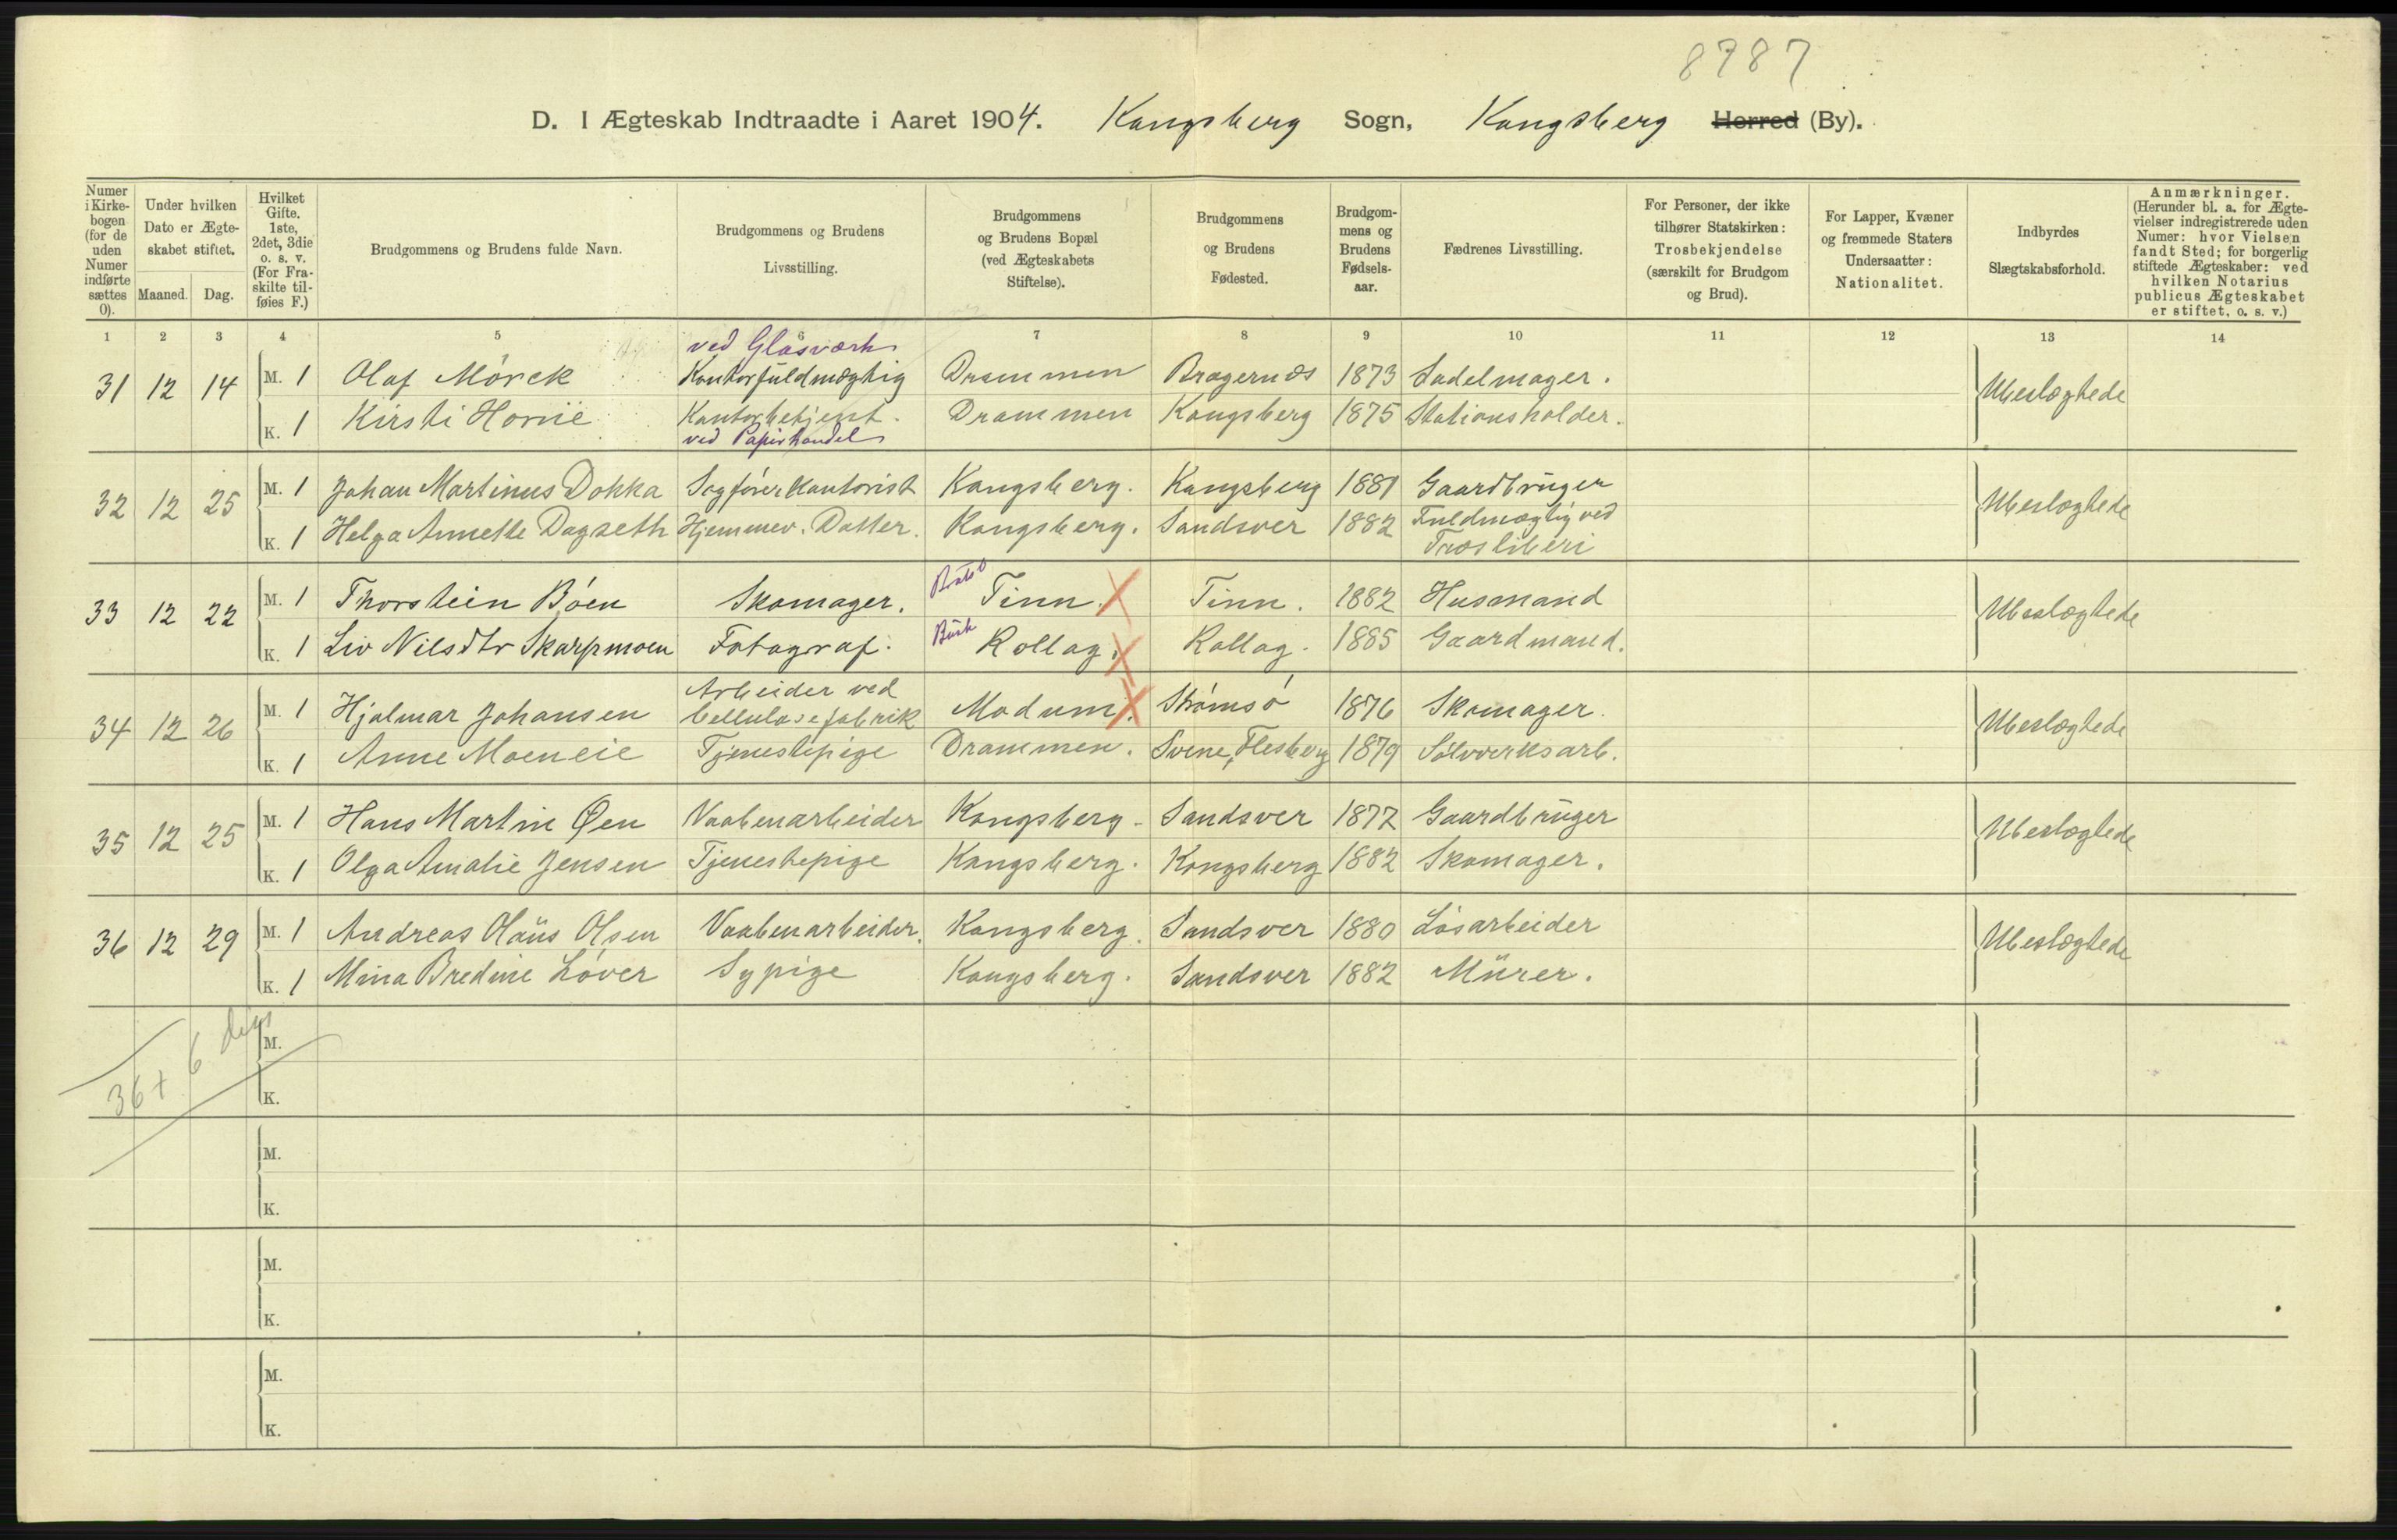 8787
D. I Ægteskab Indtraadte i Aaret 1904. Kongsberg Sogn, Kongsberg Herred (By).
Numer i Kirkebogen (for de uden Numer indførte sættes 0).
Under hvilken Dato er Ægteskabet stiftet.
Maaned. Dag.
Hvilket Gifte. 1ste, 2det, 3die o. s. v. (For Fraskilte tilføies F.)
Brudgommens og Brudens fulde Navn.
Brudgommens og Brudens Livsstilling.
Brudgommens og Brudens Bopæl (ved Ægteskabets Stiftelse).
Brudgommens og Brudens Fødested.
Brudgommens og Brudens Fødselsaar.
Fædrenes Livsstilling.
For Personer, der ikke tilhører Statskirken: Trosbekjendelse (særskilt for Brudgom og Brud).
For Lapper, Kvæner og fremmede Staters Undersaatter: Nationalitet.
Indbyrdes Slægtskabsforhold.
Anmærkninger. (Herunder bl. a. for Ægtevielser indregistrerede uden Numer: hvor Vielsen fandt Sted; for borgerlig stiftede Ægteskaber: ved hvilken Notarius publicus Ægteskabet er stiftet, o. s. v.)
1 2 3 4 5 6 7 8 9 10 11 12 13 14
ved Glasværk
31 12 14 M. 1 Olaf Mörck Kontorfuldmægtig Drammen Bragernæs 1873 Sadelmager. Ubeslægtede
K. 1 Kirsti Hornie Kontorbetjent. Drammen Kongsberg 1875 Stationsholder.
ved Papirhandel
32 12 25 M. 1 Johan Martinus Dokka Sagförerkontorist Kongsberg. Kongsberg 1881 Gaardbrüger Ubeslægtede
K. 1 Helga Annette Dagseth Hjemmev. Datter. Kongsberg. Sandsver 1882 Fuldmægtig ved
Træsliberi
33 12 22 M. 1 Thorstein Böen Skomager. Bratsb Tinn. X Tinn. 1882 Husmand Ubeslægtede
K. 1 Liv Nilsdtr Skarpmoen Fotograf. Busk Rollag. X Rollag. 1885 Gaardmand.
Arbeider ved
34 12 26 M. 1 Hjalmar Johansen Cellulosefabrik Modum. X Strömsö 1876 Skomager. Ubeslægtede
K. 1 Anne Moeneie Tjenestepige Drammen. Svene, Flesberg 1879 Sölvverksarb.
35 12 25 M. 1 Hans Martin Øen Vaabenarbeider Kongsberg. Sandsver 1877 Gaardbrüger Ubeslægtede
K. 1 Olga Amalie Jensen Tjenestepige Kongsberg. Kongsberg 1882 Skomager.
36 12 29 M. 1 Andreas Olaüs Olsen Vaabenarbeider. Kongsberg. Sandsver 1880 Lösarbeider Ubeslægtede
K. 1 Mina Bredine Löver Sypige Kongsberg. Sandsver 1882 Mürer.
36 + 6
M.
K.
M.
K.
M.
K.
M.
K.